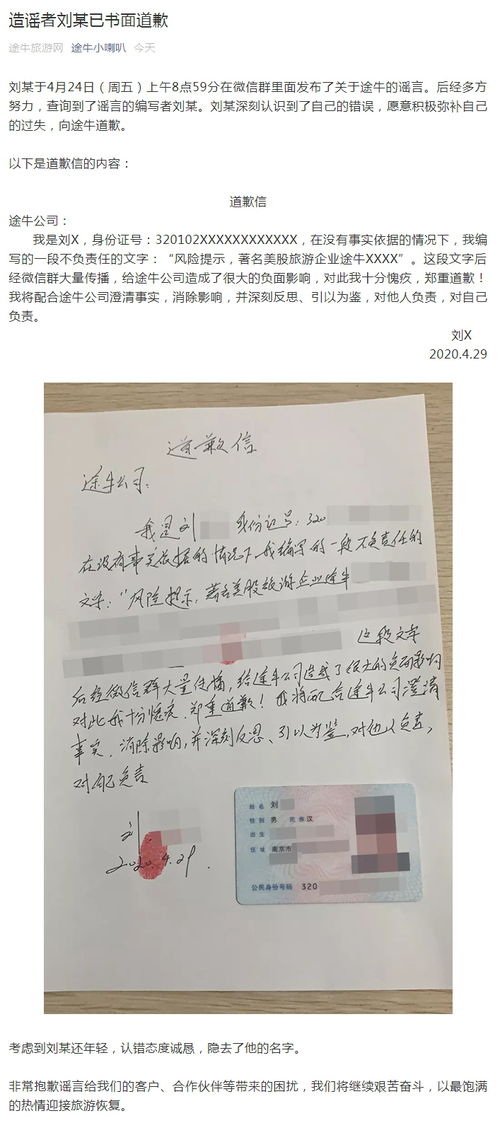 造谣者刘某已书面道歉
途牛旅游网 途牛小喇叭 今天
刘某于4月24日（周五）上午8点59分在微信群里面发布了关于途牛的谣言。后经多方
努力，查询到了谣言的编写者刘某。刘某深刻认识到了自己的错误，愿意积极弥补自己
的过失，向途牛道歉。
以下是道歉信的内容：
道歉信
途牛公司：
我是刘X，身份证号：320102XXXXXXXXXXXX，在没有事实依据的情况下，我编
写的一段不负责任的文字：“风险提示，著名美股旅游企业途牛XXXX”。这段文字后
经微信群大量传播，给途牛公司造成了很大的负面影响，对此我十分愧疚，郑重道歉！
我将配合途牛公司澄清事实，消除影响，并深刻反思、引以为鉴，对他人负责，对自己
负责。
刘X
2020.4.29
道歉信
途牛公司：
我是刘 身份证号：320
在没有事实依据的情况下，我编写的一段不负责任的
文字：“风险提示，著名美股旅游企业途牛
这段文字
后经微信群大量传播，给途牛公司造成了很大的负面影响
对此我十分愧疚，郑重道歉！我将配合途牛公司澄清
事实，消除影响，并深刻反思、引以为鉴，对他人负责，
对自己负责
刘
2020.4.29.
姓名 刘
性别 男 民族 汉
出生
住址 南京市
公民身份号码 320
考虑到刘某还年轻，认错态度诚恳，隐去了他的名字。
非常抱歉谣言给我们的客户、合作伙伴等带来的困扰，我们将继续艰苦奋斗，以最饱满
的热情迎接旅游恢复。